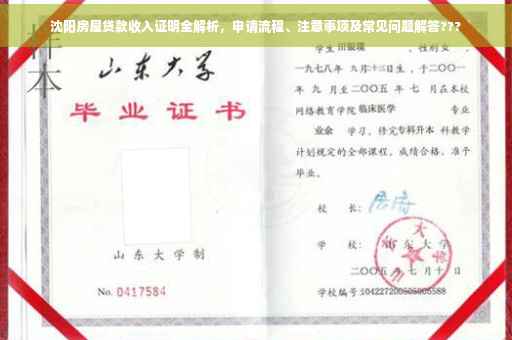 沈阳房屋贷款收入证明全解析，申请流程、注意事项及常见问题解答???
样本
山东大学
毕业证书
山东大学制
No. 0417584
学生 田银瑞 ，性别女 ，
一九七八年 九月十三日生，于二〇〇一
年 九 月至二〇〇五 年 七 月在本校
网络教育学院 临床医学 专业
业余 学习，修完专科升本 科教学
计划规定的全部课程，成绩合格，准予
毕业。
校 长：
学 校：山东大学
二〇〇五 年 七 月 十 日
学校编号：104227200505005588